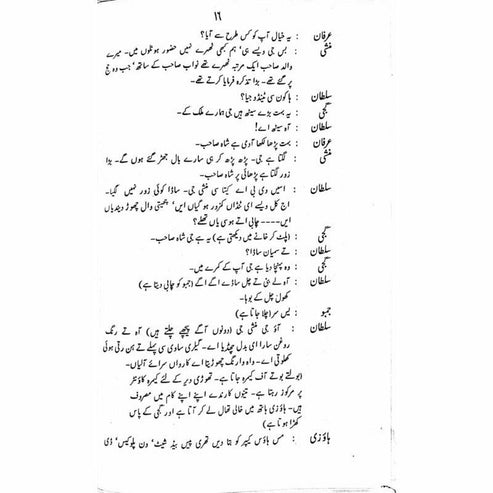 ۱۶
عرفان : یہ خیال آپ کو کس طرح سے آیا؟
منشی : بس جی ویسے ہی' ہم کبھی ٹھہرے نہیں حضور ہوٹلوں میں۔ میرے
والد صاحب ایک مرتبہ ٹھہرے تھے نواب صاحب کے ساتھ' جب وہ حج
پر گئے تھے۔ بڑا تذکرہ فرمایا کرتے تھے۔
سلطان : ہا کون سی ٹینڈو جیا؟
گجی : یہ بہت بڑے سیٹھ ہیں جی ہمارے ملک کے۔
سلطان : آہ سیٹھ اے!
عرفان : بہت پڑھا لکھا آدمی ہے شاہ صاحب۔
منشی : لگتا ہے جی۔ پڑھ پڑھ کر ہی سارے بال جھڑ گئے ہوں گے۔ بڑا
زور لگتا ہے پڑھائی پر شاہ صاحب۔
سلطان : ایسں وی بی اے کیتا سی منشی جی۔ ساڈا کوئی زور نہیں لگیا۔
اج کل ویسے ای ٹنڈاں کمزور ہو گیاں ایں' چھیتی وال چھوڑ دیندیاں
ایں---- چابی اتے ہو سی یاں تھلے؟
گجی : (پلٹ کر خانے میں دیکھتی ہے) یہ ہے جی شاہ صاحب۔
سلطان : تے سمیان ساڈا؟
گجی : وہ پہنچا دیا ہے جی آپ کے کمرے میں۔
سلطان : آہ لے بئی تے چل ساڈے اگے اگے (جمبو کو چابی دیتا ہے)
کھول چل کے بوہا۔
جمبو : یس سر (چلا جاتا ہے)
سلطان : آؤ جی منشی جی (دونوں آگے پیچھے چلتے ہیں) آہ تے رنگ
روغن سارا ای بدل چھڈیا اے۔ گیلری ساوی سی پہلے تے ہن رتی ہوئی
کھلوتی اے۔ واہ وا رنگ چھوڑیتا اے کارواں سرائے آلیاں۔
(بولتے بولتے آف کیمرہ جاتا ہے۔ تھوڑی دیر کے لئے کیمرہ کاؤنٹر
پر مرکوز رہتا ہے۔ تینوں کارندے اپنے اپنے کام میں مصروف
ہیں۔ ہاؤزی ہاتھ میں خالی تھال لے کر آتا ہے اور گجی کے پاس
کھڑا ہوتا ہے)
ہاؤزی : مس ہاؤس کیپر کو بتا دیں تھری پیس بیڈ شیٹ' ون پلوکیس' ڈی